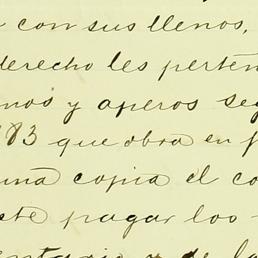 con sus llenos,
derecho les perten
nos y aperos seg
83 que obra en f
una copia el co
ste pagar los
entario y de la